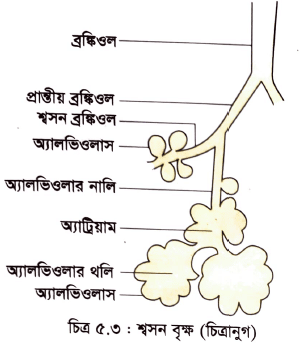 ব্রঙ্কিওল
প্রান্তীয় ব্রঙ্কিওল
শ্বসন ব্রঙ্কিওল
অ্যালভিওলাস
অ্যালভিওলার নালি
অ্যাট্রিয়াম
অ্যালভিওলার থলি
অ্যালভিওলাস
চিত্র ৫.৩ : শ্বসন বৃক্ষ (চিত্রানুগ)